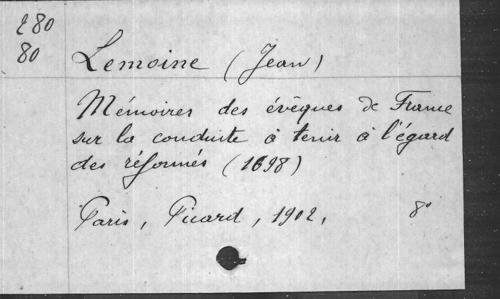 280
80
Lemoine (Jean)
Mémoires des évêques de France
sur la conduite à tenir à l'égard
des réformés (1698)
Paris, Picard, 1902, 8°